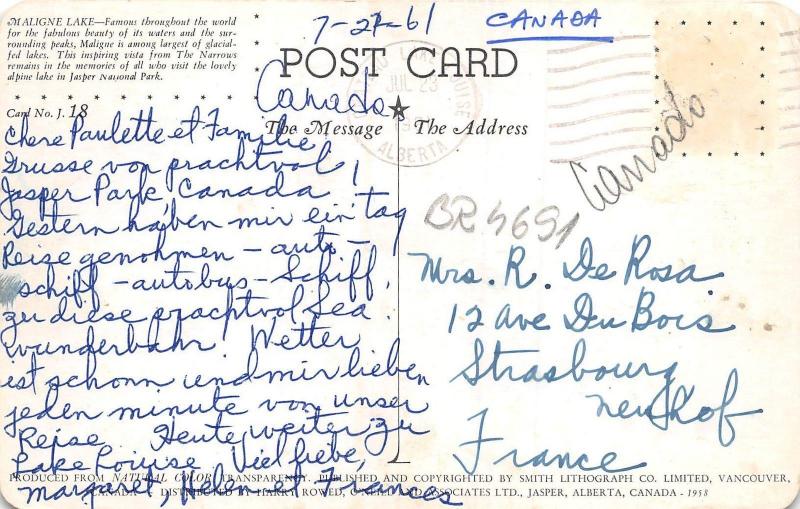 7-27-61
CANADA
MALIGNE LAKE—Famous throughout the world
for the fabulous beauty of its waters and the sur-
rounding peaks, Maligne is among largest of glacial-
fed lakes. This inspiring vista from The Narrows
remains in the memories of all who visit the lovely
alpine lake in Jasper National Park.
Card No. J. 18
POST CARD
The Message
The Address
LAKE LOUISE
JUL 23
ALBERTA
Canada
Chere Paulette et Familie
Grusse von prachtvol
Jasper Park, Canada!
Gestern haben mir ein tag
Reise genohmen - auto-
schiff - autobus - Schiff,
zu diese prachtvol Sea.
wunderbahr! Wetter
ist schonn und mir lieben
jeden minute von unser
Reise Heute weiter zu
Lake Louise Viel liebe,
Margaret, Helen et Frances
Canada
BR 4691
Mrs. R. De Rosa
12 ave Du Bois
Strasbourg
neuhof
France
PRODUCED FROM NATURAL COLOR TRANSPARENCY. PUBLISHED AND COPYRIGHTED BY SMITH LITHOGRAPH CO. LIMITED, VANCOUVER,
CANADA - DISTRIBUTED BY HARRY ROWED, O'NEILL AND ASSOCIATES LTD., JASPER, ALBERTA, CANADA - 1958